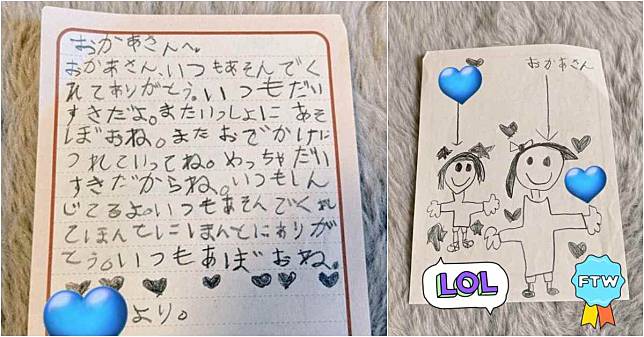 おかあさんへ。
おかあさん、いつもあそんでく
れてありがとう。いつもだい
すきだよ。またいっしょにあそ
ぼおね。またおでかけに
つれていってね。めっちゃだい
すきだからね。いつもしん
じてるよ。いつもあそんでくれ
てほんてにほんてにありが
とう。いつもあぼおね。
より。
おかあさん
LOL
FTW